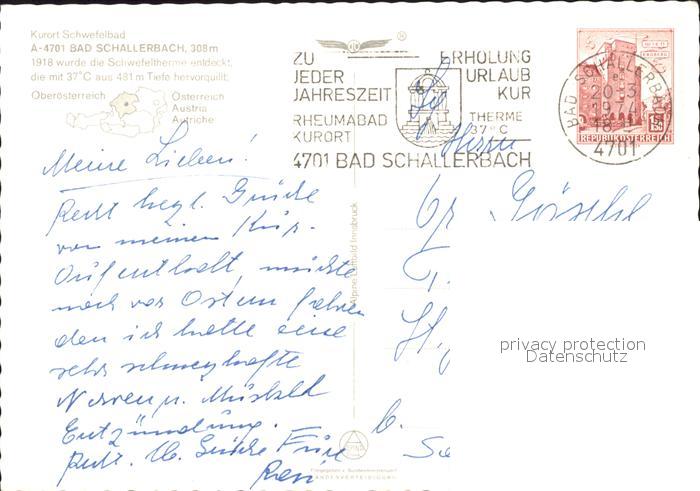 Kurort Schwefelbad
A-4701 BAD SCHALLERBACH, 308m
1918 wurde die Schwefeltherme entdeckt,
die mit 37°C aus 481 m Tiefe hervorquillt.
Oberösterreich
Österreich
Austria
Autriche
ZU
JEDER
JAHRESZEIT
ERHOLUNG
URLAUB
KUR
RHEUMABAD
KURORT
THERME
37°C
4701 BAD SCHALLERBACH
BAD SCHALLERBACH
20.-3.
1974
4701
REPUBLIK ÖSTERREICH
Herrn
Meine Lieben!
Recht hzgl. Grüße
von meinem Kur-
Aufenthalt, mußte
noch vor Ostern fahren
denn ich hatte eine
sehr schmerzhafte
Nerven u. Muskel
Entzündung.
Alpine Luftbild Innsbruck
privacy protection
Datenschutz
LANDESVERTEIDIGUNG